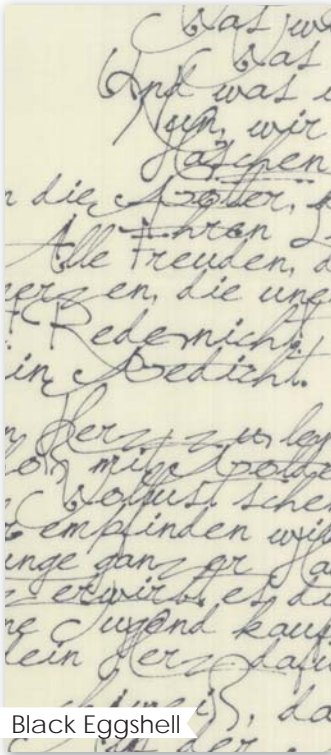 Was w
Was
Und was u
Nun, wir
Haschen
n die Götter,
Ihren L
Alle Freuden, d
erzen, die un
Rede nicht!
in Gedicht.
n Herz zu leg
mit Golde
Wollust sche
empfinden wil
inge ganz er Ha
z erwirbt es d
ne Jugend kauf
lein Herz dafü
da
der
Black Eggshell